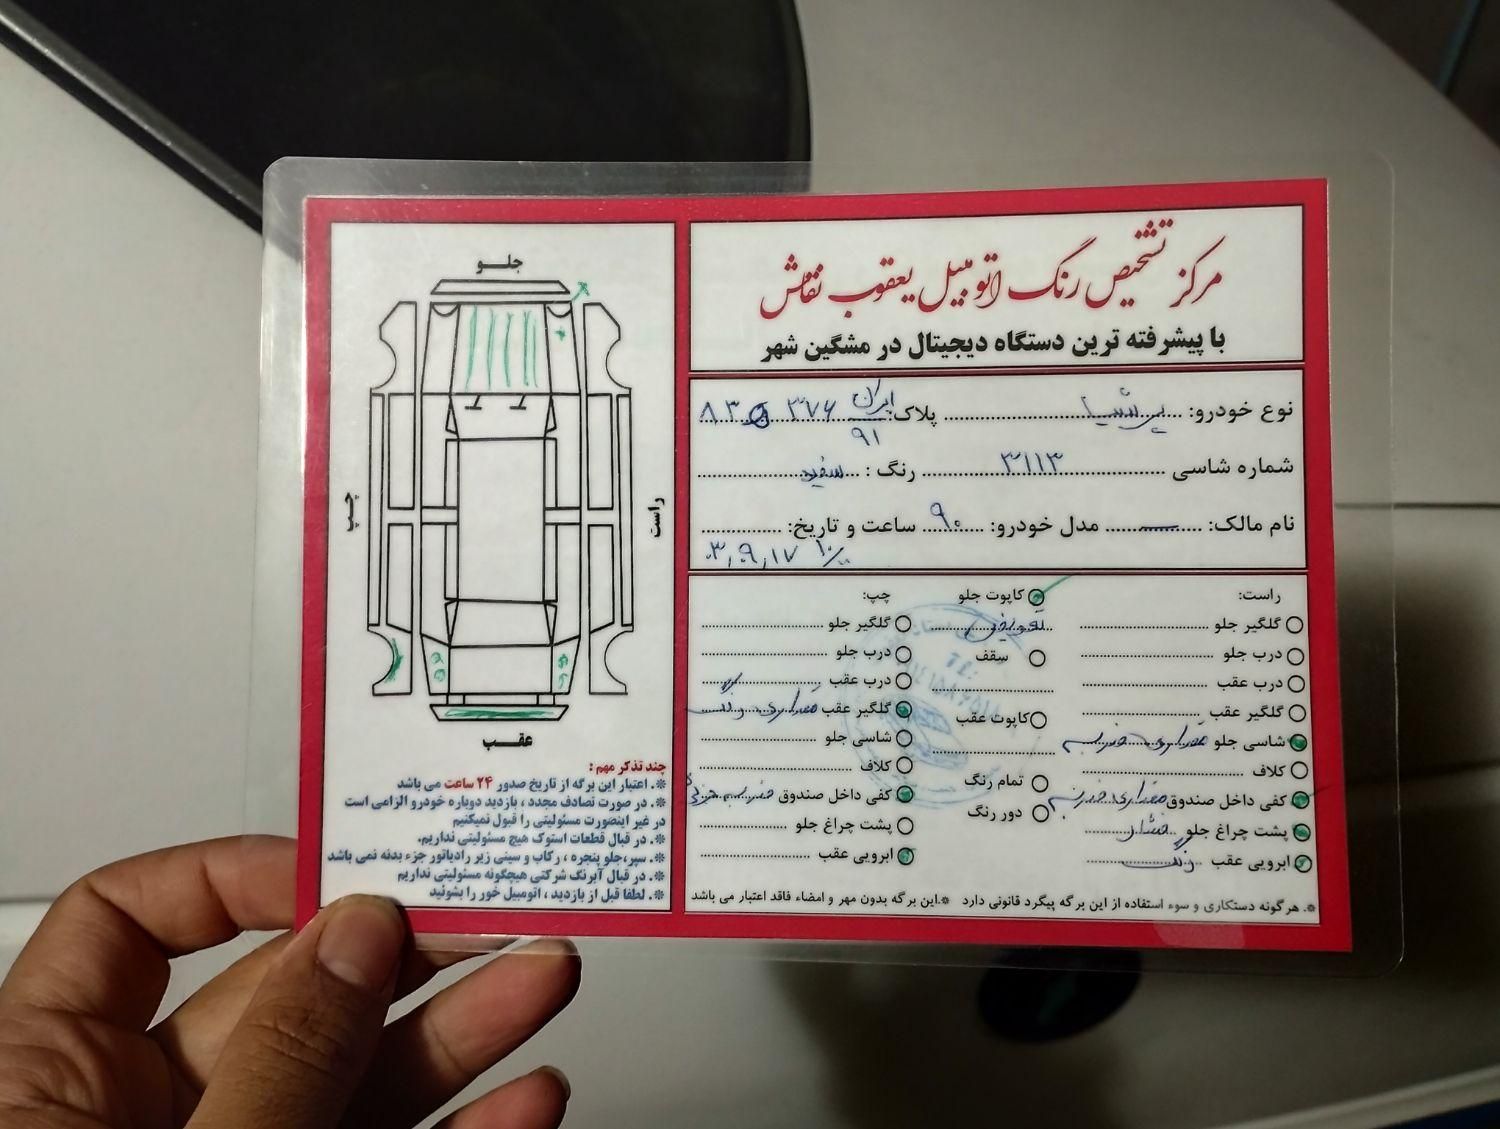 مرکز تشخیص رنگ اتومبیل یعقوب نقاش
با پیشرفته ترین دستگاه دیجیتال در مشگین شهر
نوع خودرو: پرشیا پلاک: ایران ۹۱ ۳۷۶ ۸۳
شماره شاسی ۳۱۱۳ رنگ : سفید
نام مالک: مدل خودرو: ۹۰ ساعت و تاریخ:
۰۳,۹,۱۷
راست:
گلگیر جلو
درب جلو
درب عقب
گلگیر عقب
شاسی جلو مقداری ضربه
کلاف
کفی داخل صندوق مقداری ضربه
پشت چراغ جلو
ابرویی عقب رنگ
کاپوت جلو
تعویض
سقف
کاپوت عقب
تمام رنگ
دور رنگ
چپ:
گلگیر جلو
درب جلو
درب عقب
گلگیر عقب مقداری رنگ
شاسی جلو
کلاف
کفی داخل صندوق
پشت چراغ جلو
ابرویی عقب
※. هرگونه دستکاری و سوء استفاده از این برگه پیگرد قانونی دارد ※.این برگه بدون مهر و امضاء فاقد اعتبار می باشد
جلـو
چپ
راست
عقـب
چند تذکر مهم :
※. اعتبار این برگه از تاریخ صدور ۲۴ ساعت می باشد
※. در صورت تصادف مجدد ، بازدید دوباره خودرو الزامی است
در غیر اینصورت مسئولیتی را قبول نمیکنیم
※. در قبال قطعات استوک هیچ مسئولیتی نداریم.
※. سپر،جلو پنجره ، رکاب و سینی زیر رادیاتور جزء بدنه نمی باشد
※. در قبال آبرنگ شرکتی هیچگونه مسئولیتی نداریم
※. لطفا قبل از بازدید ، اتومبیل خور را بشوئید